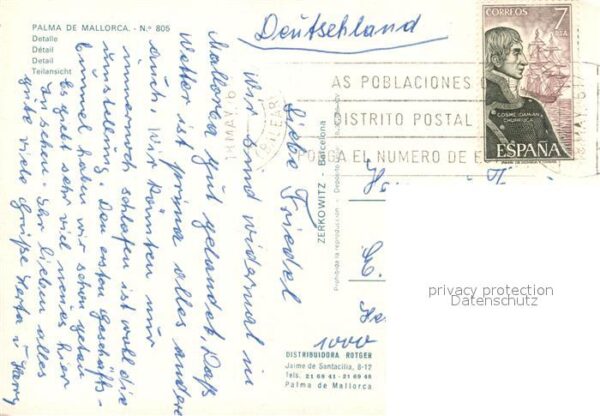 PALMA DE MALLORCA. - N.º 805
Detalle
Détail
Detail
Teilansicht
Deutschland
CORREOS 7 PTA
COSME DAMIAN
CHURRUCA
ESPAÑA
AS POBLACIONES
DISTRITO POSTAL
PONGA EL NUMERO DE E
18 MAY
BALEAR
Liebe Friedel
Wir sind wiedermal in
Mallorca gut gelandet. Das
Wetter ist prima alles andere
auch. Wir könnten nur
immernoch schlafen ist wohl die
umstellung. Den ersten geschäfts-
bumel haben wir schon getan
Es gibt sehr viel neues hier
an sehen. Ihr lieben alles
gute viele Grüße Herta u Harry
ZERKOWITZ - Barcelona
Prohibida la reproducción
1000
DISTRIBUIDORA ROTGER
Jaime de Santacilia, 8-12
Tels. 21 69 41 - 21 69 46
Palma de Mallorca
privacy protection
Datenschutz